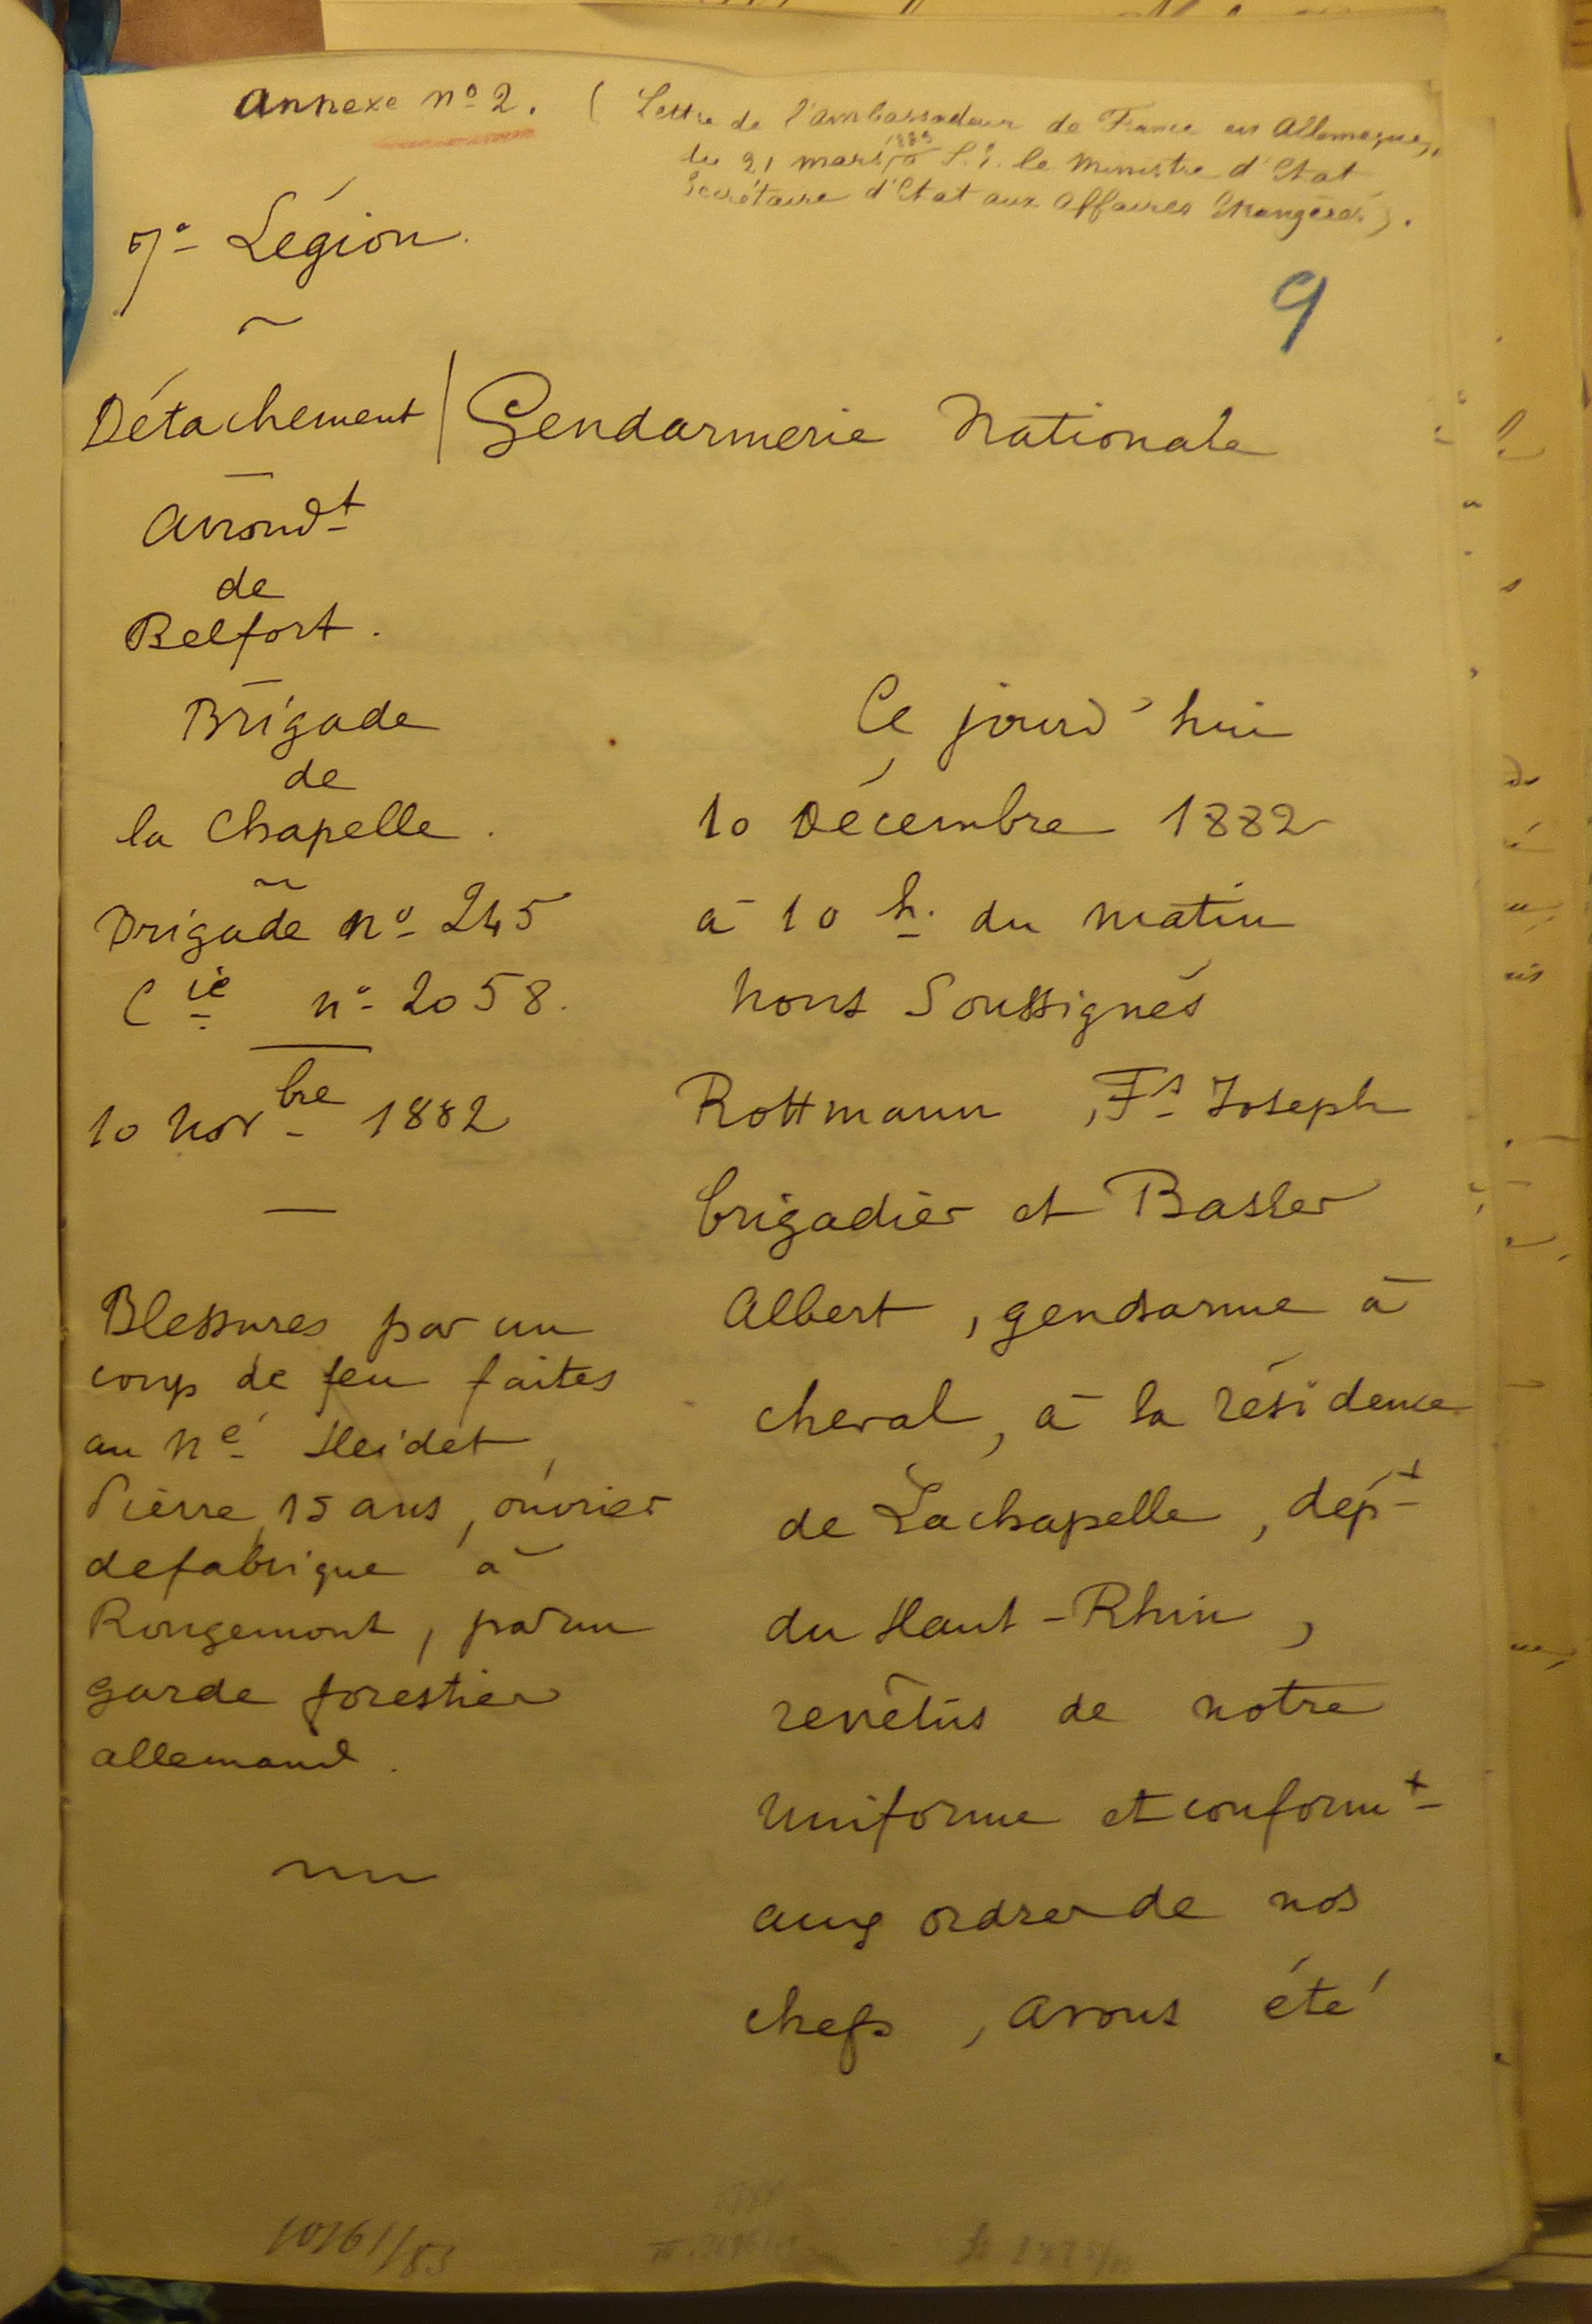 Annexe nº 2. ( Lettre de l'ambassadeur de France en Allemagne,
du 21 mars 1883 à S. E. le Ministre d'Etat
Secrétaire d'Etat aux Affaires Etrangères).
7º Légion.
9
Détachement
Gendarmerie Nationale
Arrondt
de
Belfort.
Brigade
de
la Chapelle.
Brigade nº 245
Cie nº 2058.
10 novbre 1882
Blessures par un
coup de feu faites
au né Heidet,
Pierre, 15 ans, ouvrier
de fabrique à
Rougemont, par un
garde forestier
allemand.
Ce jourd'hui
10 Décembre 1882
à 10 h. du matin
nous Soussignés
Rottmann, Fs Joseph
brigadier et Basler
Albert, gendarme à
cheval, à la résidence
de Lachapelle, dépt
du Haut-Rhin,
revêtus de notre
uniforme et conformt
aux ordres de nos
chefs, avons été